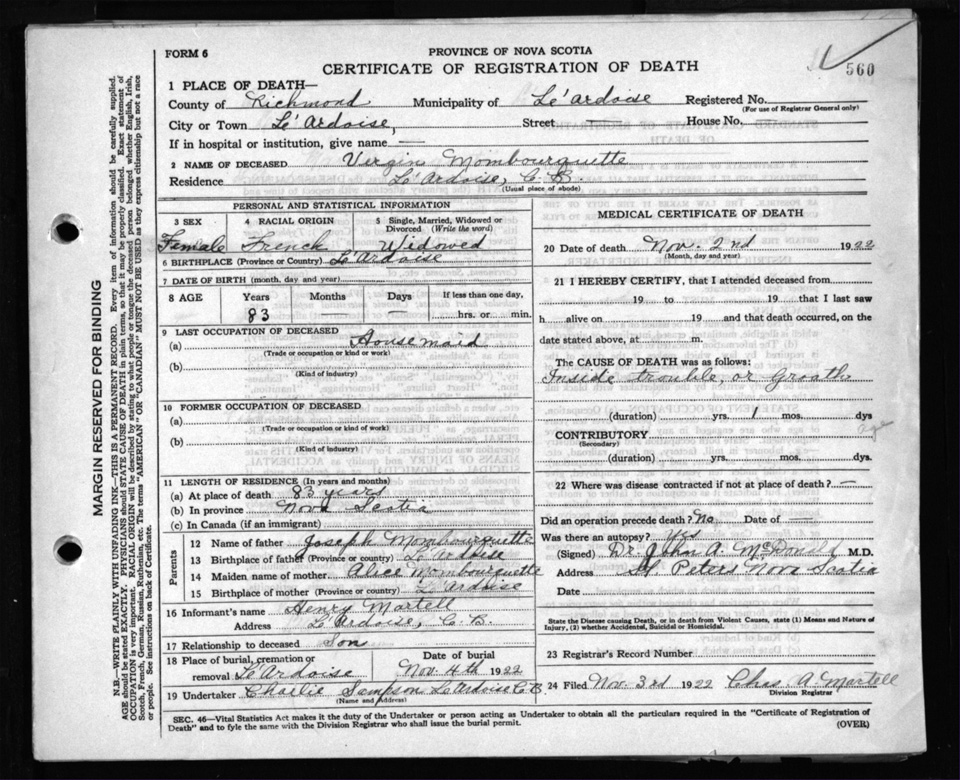 FORM 6
PROVINCE OF NOVA SCOTIA
560
CERTIFICATE OF REGISTRATION OF DEATH
1 PLACE OF DEATH—
County of Richmond Municipality of Le'Ardoise Registered No.
(For use of Registrar General only)
City or Town Le'Ardoise, Street — House No. —
If in hospital or institution, give name —
2 NAME OF DECEASED Virgin Mombourquette
Residence Le'Ardoise, C. B.
(Usual place of abode)
PERSONAL AND STATISTICAL INFORMATION
3 SEX 4 RACIAL ORIGIN 5 Single, Married, Widowed or Divorced (Write the word)
Female French Widowed
6 BIRTHPLACE (Province or Country) Le'Ardoise
7 DATE OF BIRTH (month, day and year)
8 AGE Years Months Days If less than one day,
83 — — hrs. or min.
9 LAST OCCUPATION OF DECEASED
(a) Housemaid
(Trade or occupation or kind or work)
(b)
(Kind of industry)
10 FORMER OCCUPATION OF DECEASED
(a)
(Trade or occupation or kind of work)
(b)
(Kind of industry)
11 LENGTH OF RESIDENCE (In years and months)
(a) At place of death 83 years
(b) In province Nova Scotia
(c) In Canada (if an immigrant)
Parents
12 Name of father Joseph Mombourquette
13 Birthplace of father (Province or country) Le'Ardoise
14 Maiden name of mother Alice Mombourquette
15 Birthplace of mother (Province or country) L'Ardoise
16 Informant's name Henry Martell
Address L'Ardoise, C. B.
17 Relationship to deceased Son
18 Place of burial, cremation or removal Le'Ardoise Date of burial Nov. 4th 1922
19 Undertaker Charlie Sampson Le'Ardoise C.B.
(Name and Address)
MEDICAL CERTIFICATE OF DEATH
20 Date of death Nov. 2nd 1922
(Month, day and year)
21 I HEREBY CERTIFY, that I attended deceased from
19 to 19 that I last saw
h alive on 19 and that death occurred, on the
date stated above, at m.
The CAUSE OF DEATH was as follows:
Inside trouble, or Groath
(duration) yrs. 1 mos. dys
CONTRIBUTORY age
(Secondary)
(duration) yrs. mos. dys
22 Where was disease contracted if not at place of death? —
Did an operation precede death? No Date of —
Was there an autopsy? Yes
(Signed) Dr. John A. McDonell M.D.
Address St Peters Nova Scotia
Date
State the Disease causing Death, or in death from Violent Causes, state (1) Means and Nature of
Injury, (2) whether Accidental, Suicidal or Homicidal.
23 Registrar's Record Number
24 Filed Nov. 3rd 1922 Chas. A Martell
Division Registrar
SEC. 46—Vital Statistics Act makes it the duty of the Undertaker or person acting as Undertaker to obtain all the particulars required in the "Certificate of Registration of
Death" and to fyle the same with the Division Registrar who shall issue the burial permit.
(OVER)
MARGIN RESERVED FOR BINDING
N.B.—WRITE PLAINLY WITH UNFADING INK—THIS IS A PERMANENT RECORD. Every item of information should be carefully supplied.
AGE should be stated EXACTLY. PHYSICIANS should STATE CAUSE OF DEATH in plain terms, so that it may be properly classified. Exact statement of
OCCUPATION is very important. RACIAL ORIGIN will be described by stating to what people or tongue the deceased person belonged, whether English, Irish,
Scotch, French, German, Russian, Ruthenian, etc. The terms "AMERICAN" OR "CANADIAN" MUST NOT BE USED as they express citizenship but not a race
or people. See instructions on back of Certificate.